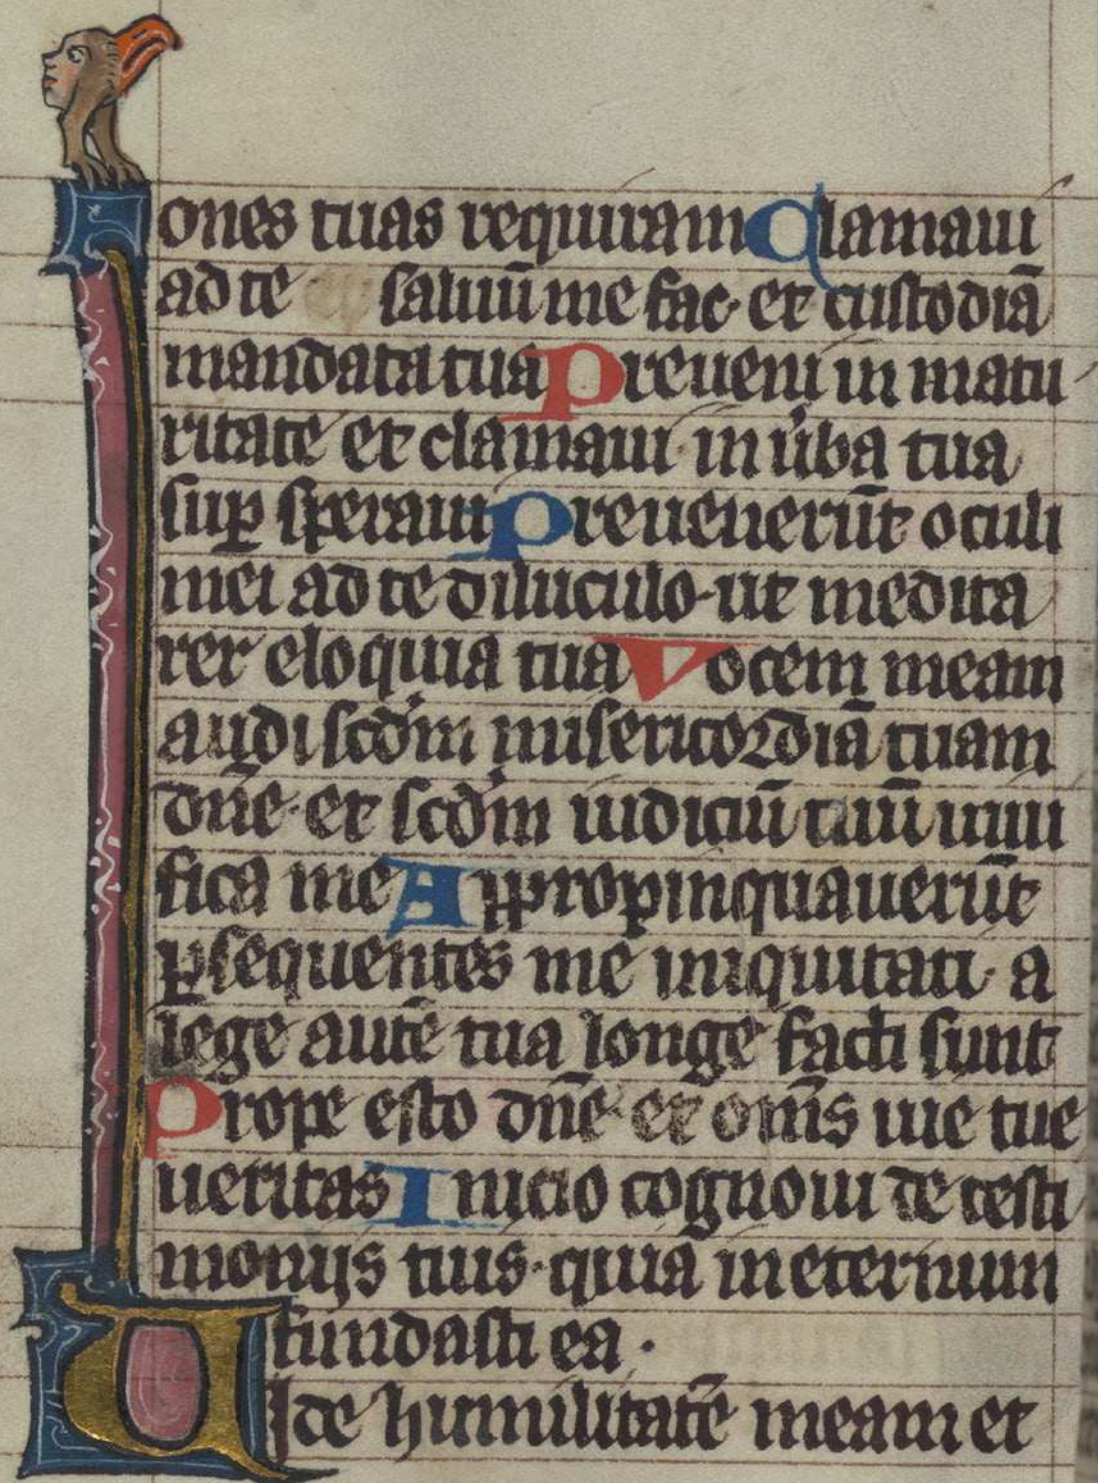 ones tuas requiram Clamaui
ad te saluū me fac· et custodiā
mandata tua Preueni in matu
ritate et clamaui· in ūba tua
suꝑ speraui Preuenerūt oculi
mei ad te diluculo· ut medita
rer eloquia tua Vocem meam
audi scdm̄ misericordiā tuam
dn̄e· et scdm̄ iudiciū tuū uiui
fica me Appropinquauerūt
ꝑsequentes me iniquitati· a
lege autē tua longe facti sunt
Prope esto dn̄e· et om̄s uie tue
ueritas Inicio cognoui de testi
monijs tuis· quia in eternum
fundasti ea·
Uide humilitatē meam et